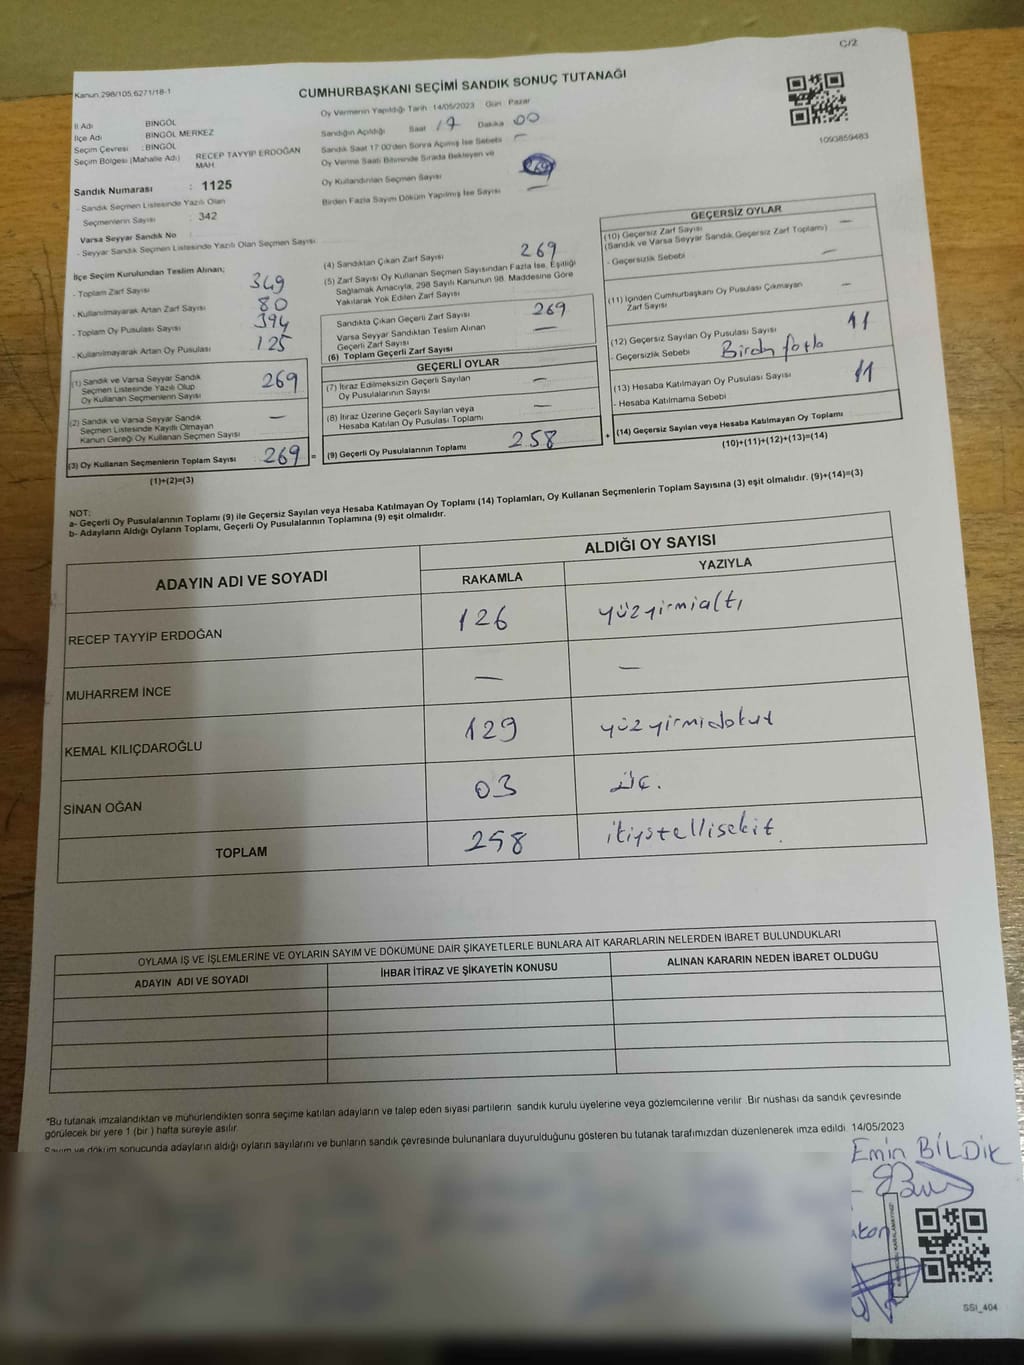 C/2
Kanun.298/105,6271/18-1
CUMHURBAŞKANI SEÇİMİ SANDIK SONUÇ TUTANAĞI
1093859483
İl Adı BİNGÖL
İlçe Adı BİNGÖL MERKEZ
Seçim Çevresi : BİNGÖL
Seçim Bölgesi (Mahalle Adı) RECEP TAYYİP ERDOĞAN MAH.
Sandık Numarası : 1125
- Sandık Seçmen Listesinde Yazılı Olan
Seçmenlerin Sayısı : 342
Varsa Seyyar Sandık No
- Seyyar Sandık Seçmen Listesinde Yazılı Olan Seçmen Sayısı
Oy Vermenin Yapıldığı Tarih :14/05/2023 Gün : Pazar
Sandığın Açıldığı Saat 17 Dakika 00
Sandık Saat 17:00'den Sonra Açılmış İse Sebebi —
Oy Verme Saati Bitiminde Sırada Bekleyen ve
Oy Kullandırılan Seçmen Sayısı
Birden Fazla Sayım Döküm Yapılmış İse Sayısı —
İlçe Seçim Kurulundan Teslim Alınan;
- Toplam Zarf Sayısı 349
- Kullanılmayarak Artan Zarf Sayısı 80
- Toplam Oy Pusulası Sayısı 394
- Kullanılmayarak Artan Oy Pusulası 125
(1) Sandık ve Varsa Seyyar Sandık
Seçmen Listesinde Yazılı Olup
Oy Kullanan Seçmenlerin Sayısı 269
(2) Sandık ve Varsa Seyyar Sandık
Seçmen Listesinde Kayıtlı Olmayan
Kanun Gereği Oy Kullanan Seçmen Sayısı —
(3) Oy Kullanan Seçmenlerin Toplam Sayısı 269 =
(1)+(2)=(3)
(4) Sandıktan Çıkan Zarf Sayısı 269
(5) Zarf Sayısı Oy Kullanan Seçmen Sayısından Fazla İse, Eşitliği
Sağlamak Amacıyla, 298 Sayılı Kanunun 98. Maddesine Göre
Yakılarak Yok Edilen Zarf Sayısı
Sandıkta Çıkan Geçerli Zarf Sayısı 269
Varsa Seyyar Sandıktan Teslim Alınan
Geçerli Zarf Sayısı —
(6) Toplam Geçerli Zarf Sayısı
GEÇERLİ OYLAR
(7) İtiraz Edilmeksizin Geçerli Sayılan
Oy Pusulalarının Sayısı —
(8) İtiraz Üzerine Geçerli Sayılan veya
Hesaba Katılan Oy Pusulası Toplamı —
(9) Geçerli Oy Pusulalarının Toplamı 258 +
GEÇERSİZ OYLAR
(10) Geçersiz Zarf Sayısı —
(Sandık ve Varsa Seyyar Sandık Geçersiz Zarf Toplamı)
- Geçersizlik Sebebi —
(11) İçinden Cumhurbaşkanı Oy Pusulası Çıkmayan
Zarf Sayısı —
(12) Geçersiz Sayılan Oy Pusulası Sayısı 11
- Geçersizlik Sebebi Birden fazla
(13) Hesaba Katılmayan Oy Pusulası Sayısı 11
- Hesaba Katılmama Sebebi
(14) Geçersiz Sayılan veya Hesaba Katılmayan Oy Toplamı
(10)+(11)+(12)+(13)=(14)
NOT:
a- Geçerli Oy Pusulalarının Toplamı (9) ile Geçersiz Sayılan veya Hesaba Katılmayan Oy Toplamı (14) Toplamları, Oy Kullanan Seçmenlerin Toplam Sayısına (3) eşit olmalıdır. (9)+(14)=(3)
b- Adayların Aldığı Oyların Toplamı, Geçerli Oy Pusulalarının Toplamına (9) eşit olmalıdır.
ADAYIN ADI VE SOYADI ALDIĞI OY SAYISI
RAKAMLA YAZIYLA
RECEP TAYYİP ERDOĞAN 126 yüzyirmialtı
MUHARREM İNCE — —
KEMAL KILIÇDAROĞLU 129 yüzyirmidokuz
SİNAN OĞAN 03 üç.
TOPLAM 258 ikiyüzellisekiz
OYLAMA İŞ VE İŞLEMLERİNE VE OYLARIN SAYIM VE DÖKÜMÜNE DAİR ŞİKAYETLERLE BUNLARA AİT KARARLARIN NELERDEN İBARET BULUNDUKLARI
ADAYIN ADI VE SOYADI İHBAR İTİRAZ VE ŞİKAYETİN KONUSU ALINAN KARARIN NEDEN İBARET OLDUĞU
"Bu tutanak imzalandıktan ve mühürlendikten sonra seçime katılan adayların ve talep eden siyasi partilerin sandık kurulu üyelerine veya gözlemcilerine verilir. Bir nüshası da sandık çevresinde
görülecek bir yere 1 (bir ) hafta süreyle asılır.
Sayım ve döküm sonucunda adayların aldığı oyların sayılarını ve bunların sandık çevresinde bulunanlara duyurulduğunu gösteren bu tutanak tarafımızdan düzenlenerek imza edildi. 14/05/2023
Emin BİLDİK
SSI_404